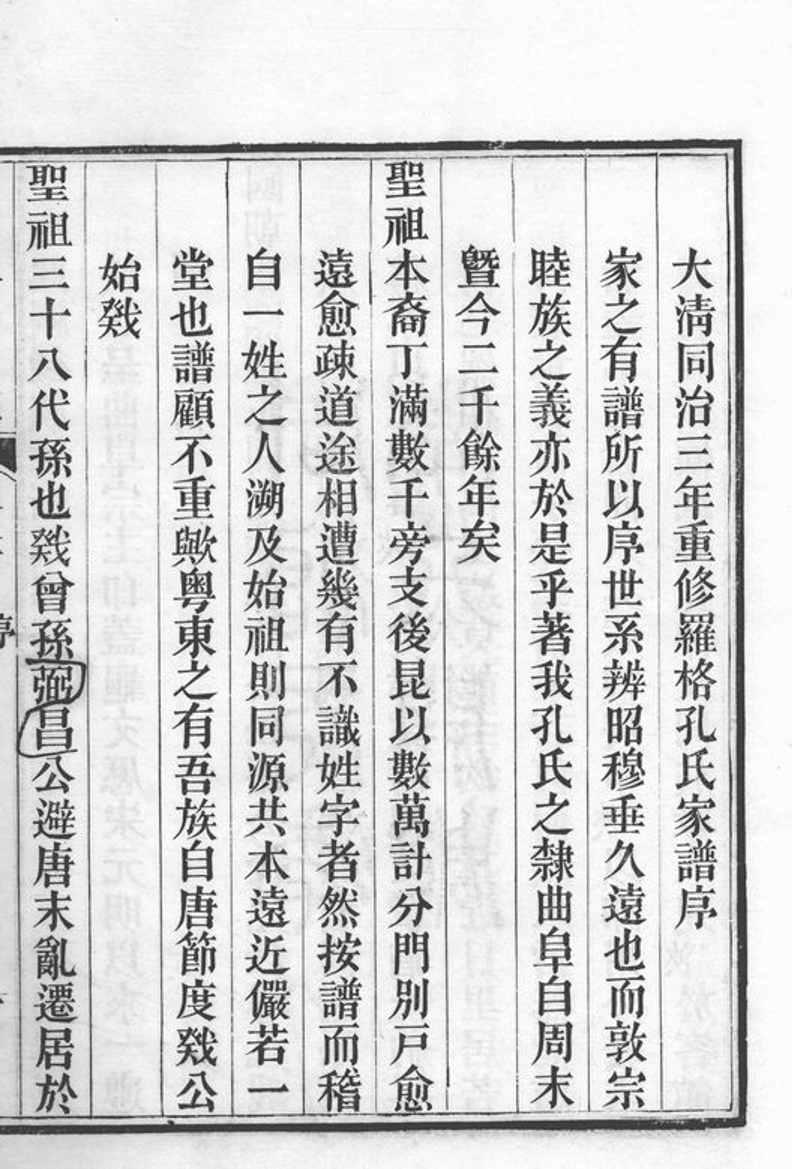 大清同治三年重修羅格孔氏家譜序
家之有譜所以序世系辨昭穆垂久遠也而敦宗
睦族之義亦於是乎著我孔氏之隸曲阜自周末
曁今二千餘年矣
聖祖本裔丁滿數千旁支後昆以數萬計分門別戸愈
遠愈疎道途相遭幾有不識姓字者然按譜而稽
自一姓之人溯及始祖則同源共本遠近儼若一
堂也譜顧不重歟粤東之有吾族自唐節度戣公
始戣
聖祖三十八代孫也戣曾孫昌公避唐末亂遷居於